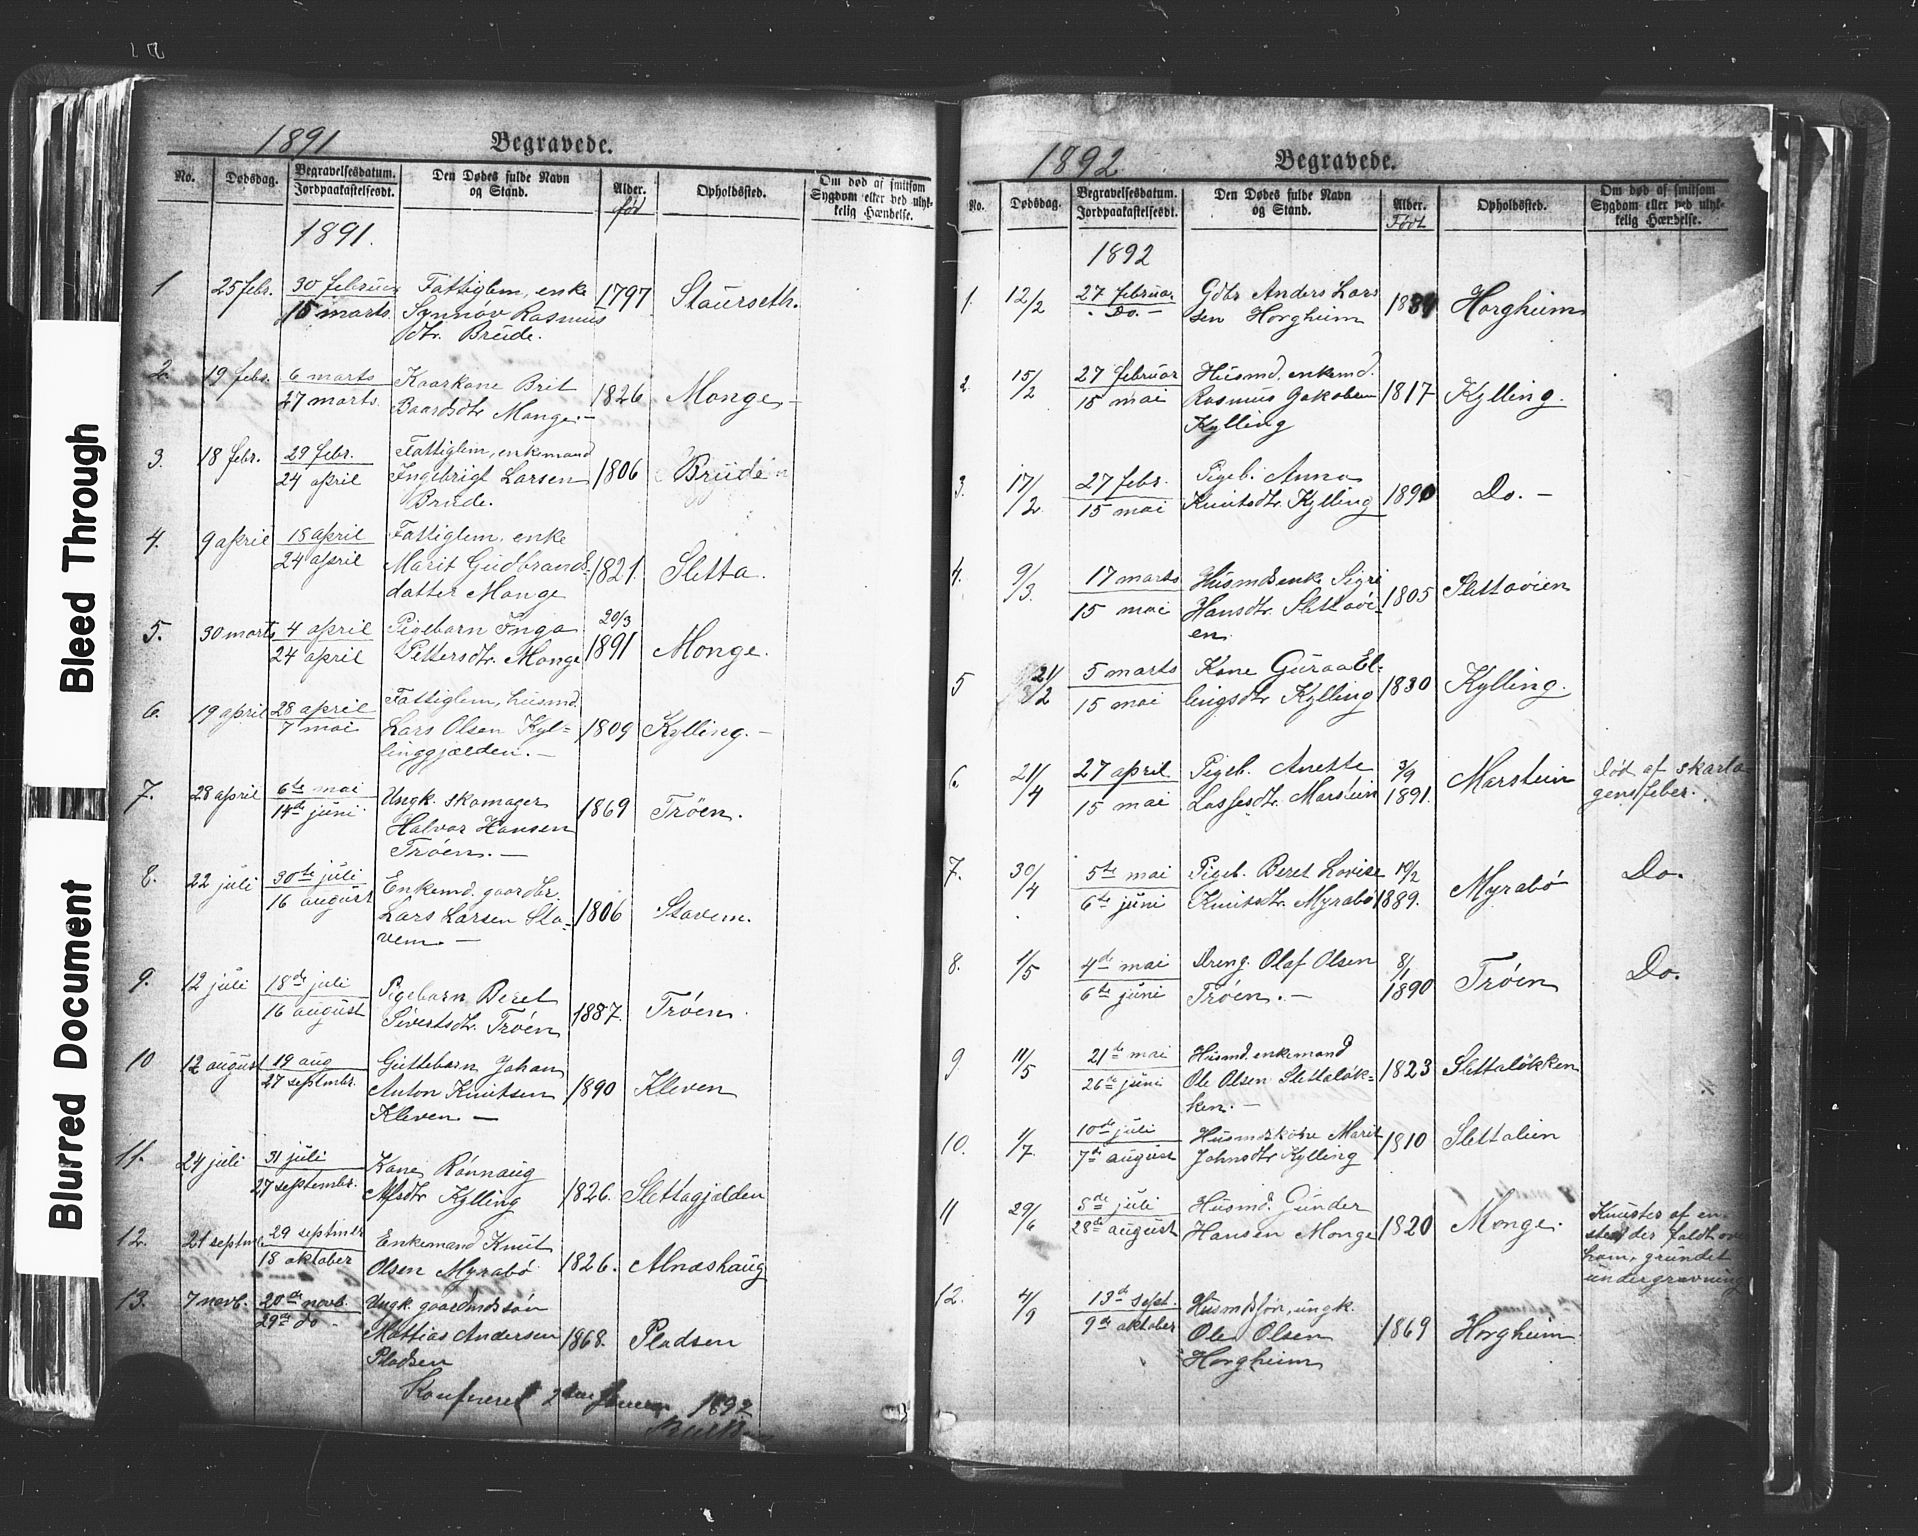 Bleed Through
Blurred Document
1891
Begravede.
No.
Dødsdag.
Begravelsesdatum.
Jordpaakastelsesdt.
Den Dødes fulde Navn
og Stand.
Alder.
født
Opholdssted.
Om død af smitsom
Sygdom eller ved ulyk-
kelig Hændelse.
1891.
1 25 febr. 30 februar Fattiglem, enke 1797 Stavrseth.
15 marts. Synnøv Rasmus
dtr. Brude.
2. 19 febr. 6 marts Kaarkone Brit 1826 Monge -
27 marts. Baardsdtr Monge. -
3. 18 febr. 29 febr. Fattiglem, enkemand
24 april Ingebrigt Larsen 1806 Bruden
Brude.
4. 9 april 15 april Fattiglem, enke
24 april Marit Gudbrands- 1821. Sletta.
datter Monge
5. 30 marts 4 april Pigebarn Inga 20/3
24 april Pettersdtr. Monge 1891 Monge.
6. 19 april 28 april Fattiglem, husmd.
7 mai Lars Olsen Kyl- 1809 Kylling. -
linggjælden. -
7. 28 april 6te mai Ungk. skomager 1869 Trøen.
14de juni Halvor Hansen
Trøen. -
8. 22 juli 30te juli Enkemd. gaardbr.
16 august Lars Larsen Sta- 1806 Stavem.
vem. -
9. 12 juli 18de juli Pigebarn Beret
16 august Sivertsdtr. Trøen 1887. Trøen.
10 12 august 19 aug Guttebarn Johan
27 septmbr. Anton Knutsen 1890 Kleven
Kleven -
11. 24 juli 31 juli Kone Rønnaug
27 septembr. Alfsdtr Kylling 1826. Slettagjælden
12. 21 septmb 29 septmbr Enkemand Knut
18 oktober Olsen Myrabø 1826. Alnæshaug
13. 7 novb. 20de novb. Ungk. gaardmdssøn
29de do - Mattias Andersen 1868. Pladsen
Pladsen
Konfereret 1892
1892
Begravede.
No.
Dødsdag.
Begravelsesdatum.
Jordpaakastelsesdt.
Den Dødes fulde Navn
og Stand.
Alder.
Født
Opholdssted.
Om død af smitsom
Sygdom eller ved ulyk-
kelig Hændelse.
1892
1. 12/2 27 februa. Gdbr Anders Lars 1834 Horgheim
- Do. - sen Horgheim
2. 15/2 27 februar Husmd. enkemd.
15 mai Rasmus Jakobsen 1817 Kylling.
Kylling
3. 17/2 27 febr. Pigeb. Anna
15 mai Knutsdtr. Kylling 1890 Do. -
4. 9/3. 17 marts Husmdsenke Sigri
15 mai Hansdtr. Slettavi- 1805 Slettavien
en.
5 21/2 5 marts Kone Guraa El-
15 mai lingsdtr Kylling 1830 Kylling.
6 21/4 27 april Pigeb. Anette 3/9 Marstein Død af skarla
15 mai Lassesdtr. Marstein 1891. gensfeber.
7. 30/4 5te mai Pigeb. Beret Lovise 19/2 Myrabø Do.
6te juni Knutsdtr. Myrabø 1889.
8. 1/5 4de mai Dreng. Olaf Olsen 8/1 Trøen Do.
6te juni Trøen. - 1890
9 11/5 21de mai Husmd. enkemand
26te juni Ole Olsen Slettaløk- 1823 Slettaløkken
ken. -
10. 1/7 10de juli Husmdskone Marit 1810 Slettalien
7de august Johnsdtr Kylling
11 29/6 5de juli Husmd. Gunder Knustes af en
28de august Hansen Monge 1820 Monge. sten der faldt ov
ham, grundet
undergravning
12. 4/9 13de sept. Husmdssøn, ungk.
9de oktober Ole Olsen 1869 Horgheim.
Horgheim